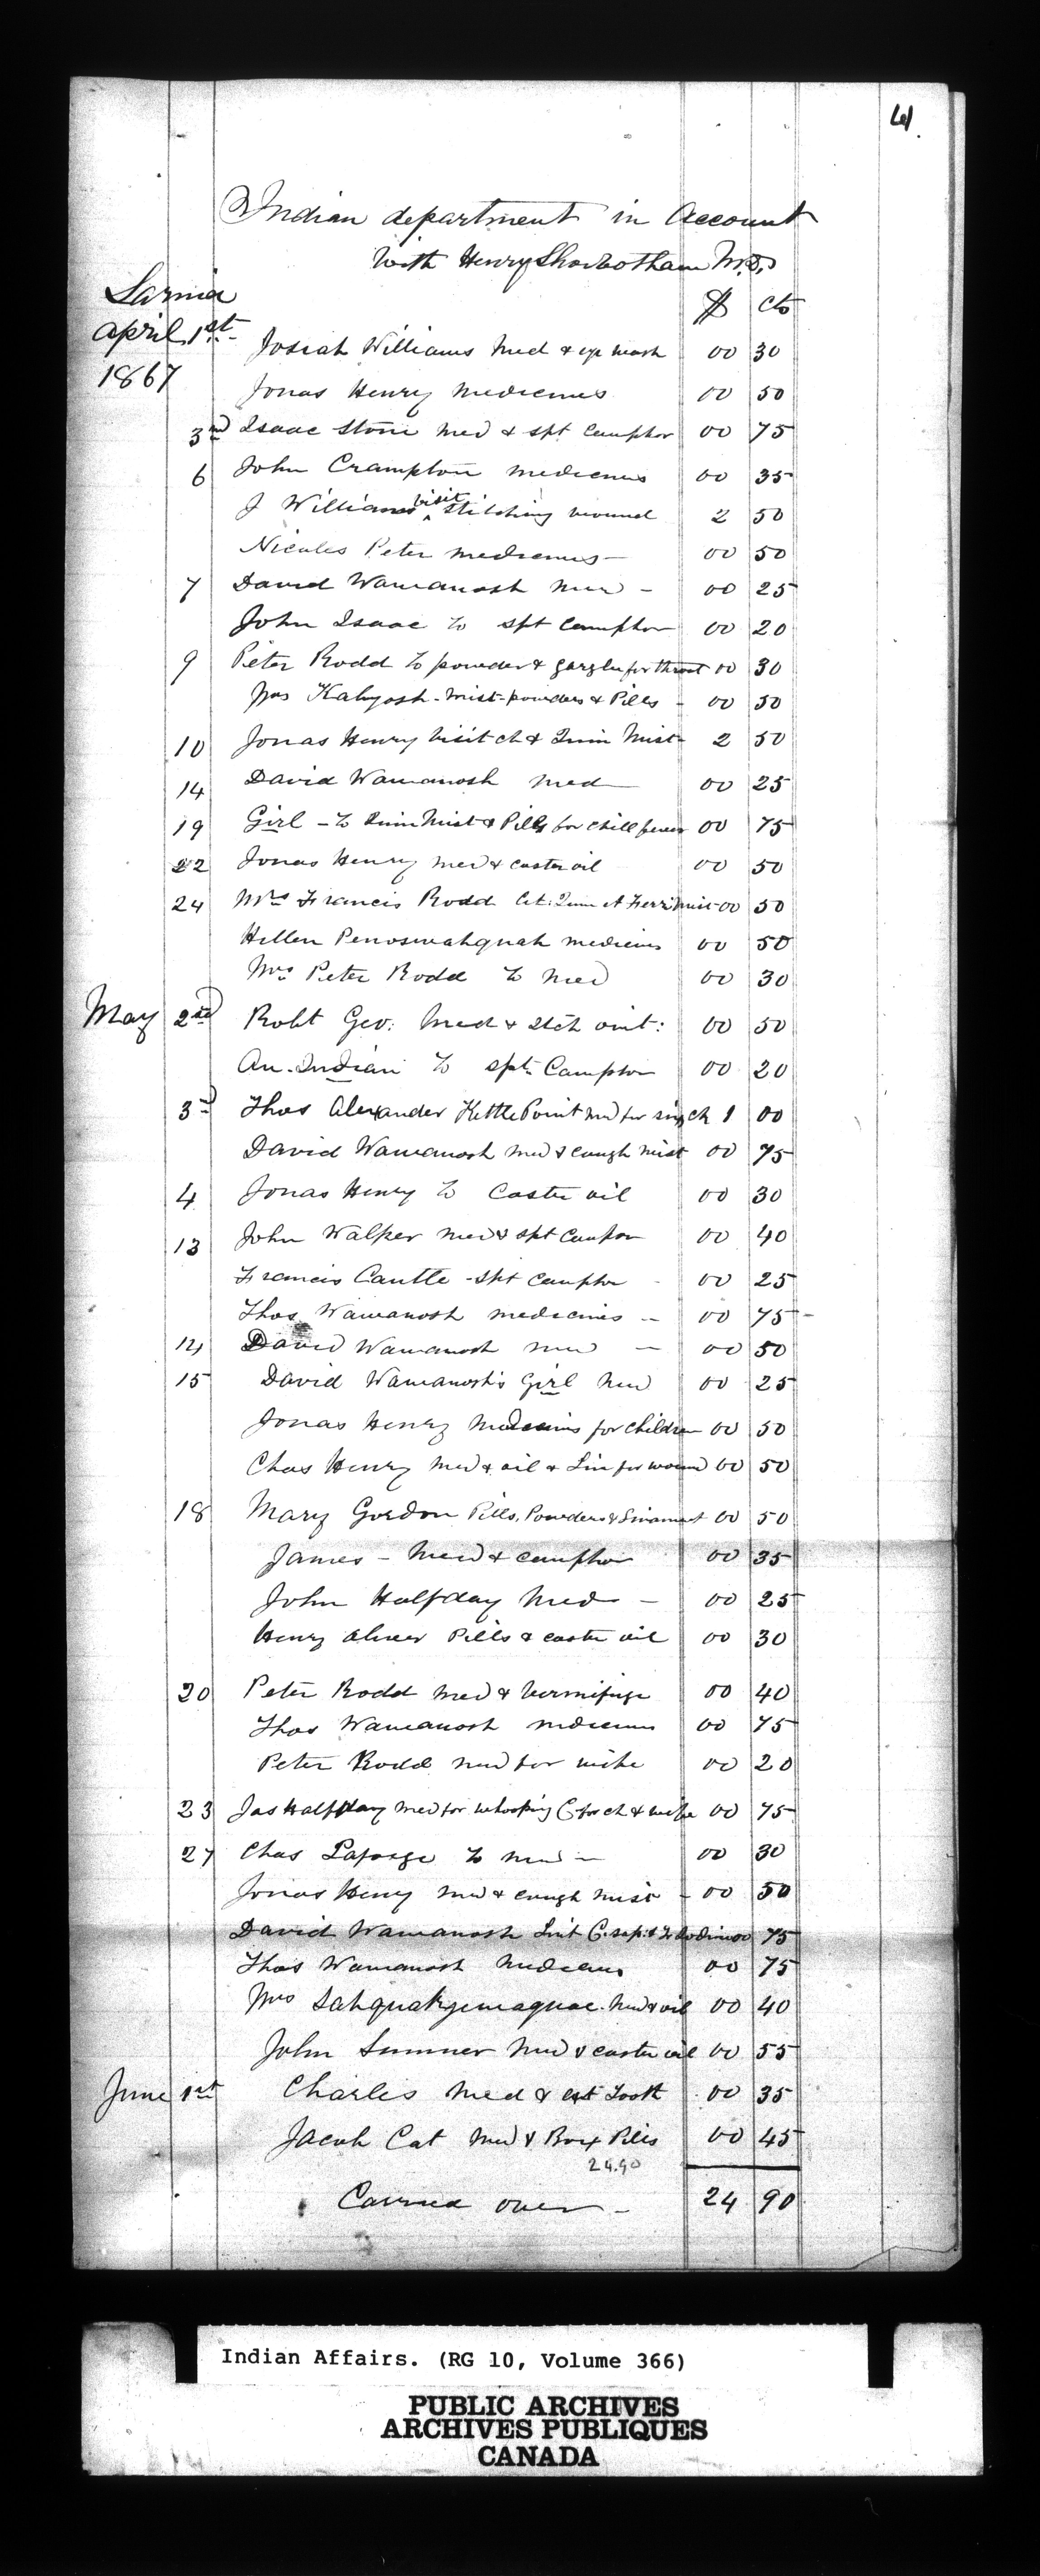 61.
Indian department in Account
With Henry Shoebotham M.D.
$ cts
Sarnia
April 1st 1867 Josiah Williams Med & eye wash 00 30
Jonas Henry Medicines 00 50
3rd Isaac Stone Med & spt Camphor 00 75
6 John Crampton medicines 00 35
J Williams visit stitching wound 2 50
Nicoles Peter medicines 00 50
7 David Wawanosh Med - 00 25
John Isaac To spt Camphor 00 20
9 Peter Rodd To powder & gargle for throat 00 30
Mrs Mist powders & Pills - 00 50
10 Jonas Henry Visit ch & Quin Mist 2 50
14 David Wawanosh Med 00 25
19 Girl - To Quin Mist & Pills for Chill fever 00 75
22 Jonas Henry Med & castor oil 00 50
24 Mrs Francis Rodd Cit: Quin et Ferri Mist 00 50
Hellen Penoswahquah medicines 00 50
Mrs Peter Rodd To Med 00 30
May 2nd Robt Geo: Med & Itch oint: 00 50
An Indian To spt Camphor 00 20
3rd Thos Alexander Kettle Point Med for sick 1 00
David Wawanosh Med & cough Mist 00 75
4 Jonas Henry To Castor oil 00 30
13 John Walker Med & spt Camphor 00 40
Francis Cantle - Spt Camphor - 00 25
Thos Wawanosh medicines - 00 75 -
14 David Wawanosh Med - 00 50
15 David Wawanosh's Girl Med 00 25
Jonas Henry Medicins for children 00 50
Chas Henry Med & oil & Lin for wound 00 50
18 Mary Gordon Pills, Powders & Linament 00 50
James - Med & camphor 00 35
John Halfday Med - 00 25
Henry Oliver Pills & castor oil 00 30
20 Peter Rodd Med & Vermifuge 00 40
Thos Wawanosh medicines 00 75
Peter Rodd Med for wife 00 20
23 Jas Halfday Med for Whooping C for ch & wife 00 75
27 Chas Laforge To Med - 00 30
Jonas Henry Med & cough Mist - 00 50
David Wawanosh 00 75
Thos Wawanosh Medicines 00 75
Mrs Med & oil 00 40
John Sumner Med & castor oil 00 55
June 1st Charles Med & ext Tooth 00 35
Jacob Cat Med & Box Pills 00 45
24.90
Carried over - 24 90
Indian Affairs. (RG 10, Volume 366)
PUBLIC ARCHIVES
ARCHIVES PUBLIQUES
CANADA